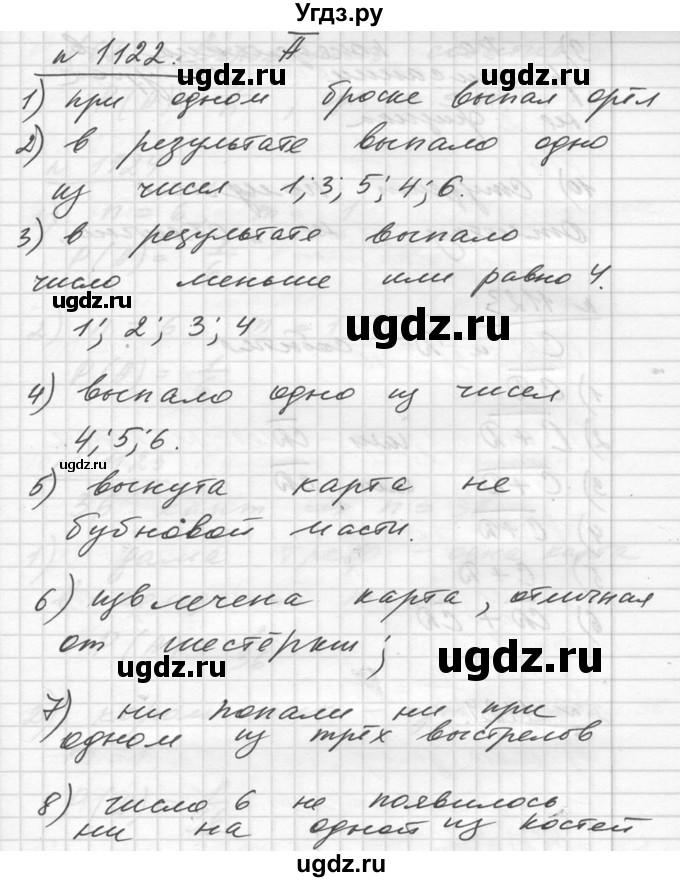 Угдз.ру
n 1122. Ā
ugdz.ru
1) при одном броске выпал орёл
ugdz.ru
2) в результате выпало одно
из чисел 1; 3; 5; 4; 6.
3) в результате выпало
число меньше или равно 4.
ugdz.ru
1; 2; 3; 4
ugdz.ru
4) выпало одно из чисел
4; 5; 6.
ugdz.ru
5) вынута карта не
бубновой масти.
6) извлечена карта, отличная
от шестёрки;
ugdz.ru
ugdz.ru
7) ни попали ни при
одном из трёх выстрелов
ugdz.ru
8) число 6 не появилось
ни на одной из костей
ugdz.ru